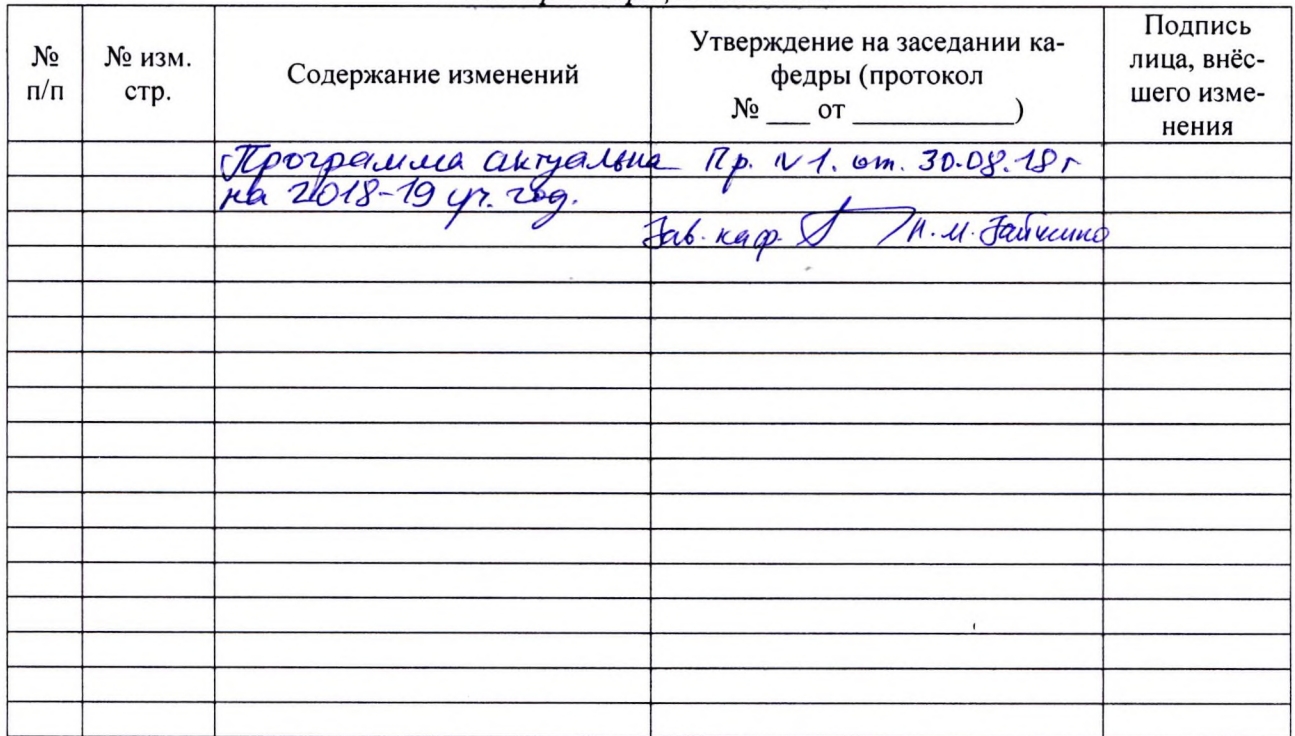 № п/п
№ изм. стр.
Содержание изменений
Утверждение на заседании ка-
федры (протокол
№ ___ от ___________)
Подпись
лица, внёс-
шего изме-
нения
Программа актуальна Пр. №1. от. 30.08.18г
на 2018-19 уч. год.
Зав. каф. Н.М.